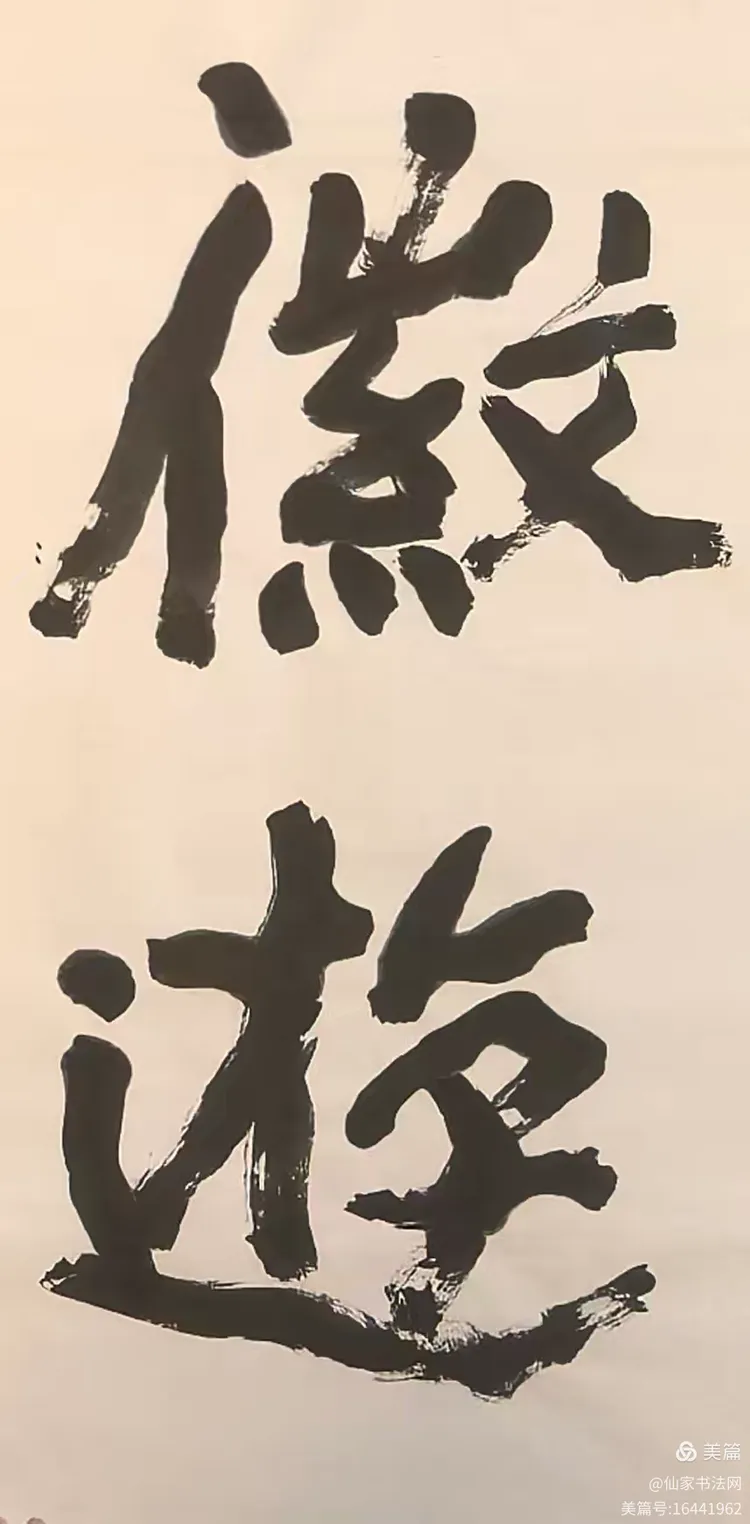 徽
遊
美篇
@仙家书法网
美篇号:16441962